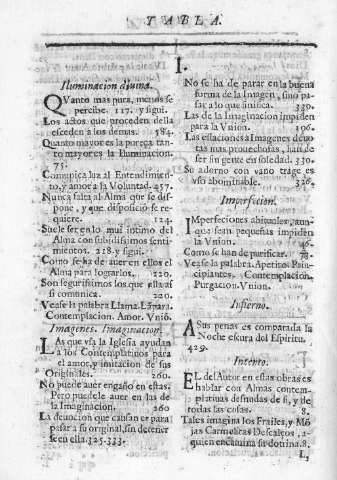 TABLA.
I.
Iluminacion divina.
QVanto mas pura, menos se
percibe. 117. y sigui.
Los actos que proceden della
esceden à los demas. 584.
Quanto mayor es la pureça tan-
to mayor es la Iluminacion.
75.
Comunica luz al Entendimien-
to, y amor a la Voluntad. 457.
Nunca falta al Alma que se dis-
pone, y que disposiciõ se re-
quiere. 124.
Suele ser en lo mui intimo del
Alma con subidisimos senti-
mientos. 228. y sigui.
Como se ha de auer en ellos el
Alma para lograrlos. 220.
Son segurissimos los que ella asi
si comunica. 220.
Vease la palabra Llama. Lãpara.
Contemplacion. Amor. Vniõ.
Imagenes. Imaginacion.
LAs que vsa la Iglesia ayudan
a los Contemplatinos para
el amor, y imitacion de sus
Originales. 260.
No puede auer engaño en estas.
Pero puedele auer en las de
la Imaginacion. 260
La deuocion que causan es para
pasar a su original, sin detener
se en ella. 325. 333.
No se ha de parar en la buena
forma de la Imagen, sino pa-
sar a lo que sinifica. 330.
Las de la Imaginacion impiden
para la Vnion. 196.
Las estaciones a Imagenes deuo-
tas mas prouechosas, han de
ser sin gente en soledad. 330.
Su adorno con vano trage es
vso abominable. 326.
Imperfecion.
IMperfeciones abituales, aun-
que sean pequeñas impiden
la Vnion. 46.
Como se han de purificar.
Vease la palabra. Apetitos Prin-
cipiantes. Contemplacion.
Purgacion. Vnion.
Infierno.
A Sus penas es comparada la
Noche escura del Espiritu.
429.
Intento.
EL del Autor en estas obras es
hablar con Almas contem-
platiuas desnudas de si, y de
todas las cosas. 8.
Tales imagina los Frailes, y Mõ
jas Carmelitas Descalços, a
quien encamina su dotrina. 8.